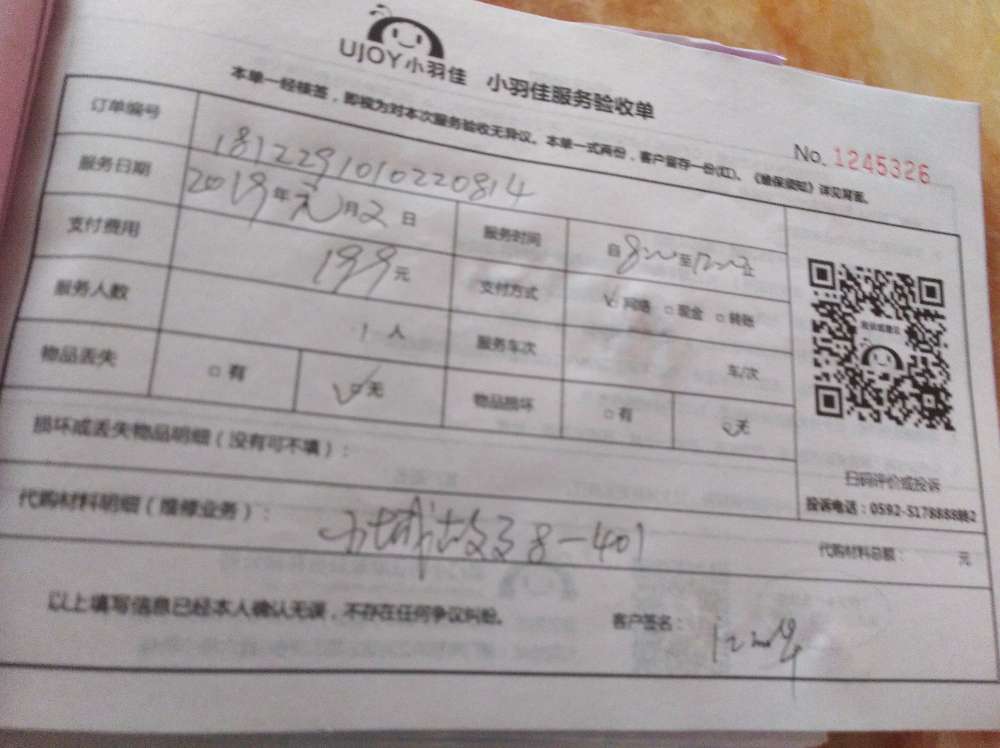 UJOY小羽佳 小羽佳服务验收单
本单一经核签，即视为对本次服务验收无异议。本单一式两份，客户留存一份(红)、《维保须知》详见背面。
No. 1245326
订单编号 1812291010220814
服务日期 2019年元月2日 服务时间 自8 至12
支付费用 199元 支付方式 √网络 □现金 □转账
服务人数 1人 服务车次 车/次
物品丢失 □有 √□无 物品损坏 □有 □√无
损坏或丢失物品明细（没有可不填）：
扫码评价或投诉
投诉电话：0592-5178888转2
代购材料明细（维修业务）： 8-401 代购材料总额： 元
以上填写信息已经本人确认无误，不存在任何争议纠纷。 客户签名：